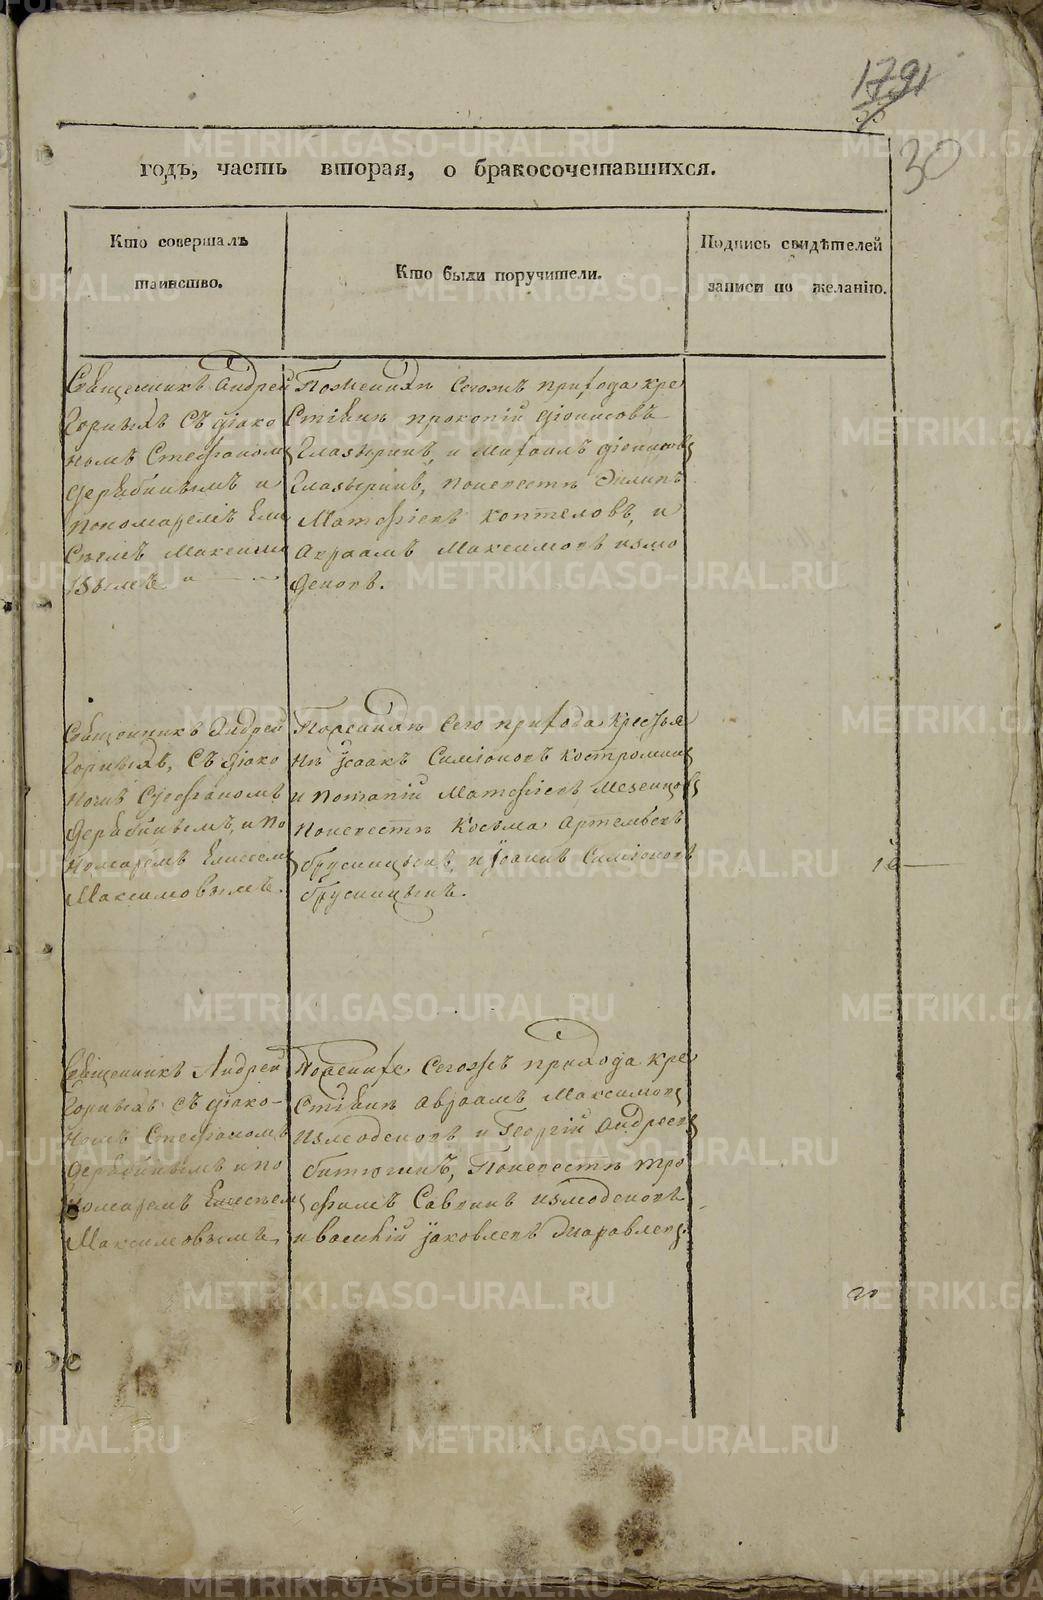 1791
30
годъ, часть вторая, о бракосочетавшихся.
Кто совершалъ
таинство.
Кто были поручители.
Подпись свидѣтелей
записи по желанію.
Священникъ Андрей
Горныхъ съ діако
номъ Стефаномъ
Дерябинымъ и
пономаремъ Ели
сеемъ Максимо
вымъ
По женихѣ сегожъ прихода кре
стьянъ прокопій діонисовъ
Глазыринъ, и Михаилъ діонисовъ
Глазыринъ, поневестѣ Филипъ
Матфіевъ Коптеловъ, и
Авраамъ Максимовъ измо
деновъ.
Священникъ Андрей
Горныхъ, съ діако
номъ Стефаномъ
Дерябинымъ, и по
номаремъ Елисеем
Максимовымъ.
Поженихѣ сего прихода крестья
нѣ Ісаакъ Симіоновъ Костроминъ
и Матфіевъ Мезенцовъ
поневестѣ Козьма Артемьевъ
брусницынъ, и Іоаннъ Симіоновъ
брусницынъ.
Священникъ Андрей
Горныхъ съ діако-
номъ Стефаномъ
Дерябинымъ и по
номаремъ Елисеем
Максимовымъ
Поженихе сегожъ прихода кре
стьянъ авраамъ Максимовъ
Измоденовъ и Георгій андреевъ
битюгинъ, Поневестѣ тро
фимъ Саввинъ измоденовъ
и василій іаковлевъ
METRIKI.GASO-URAL.RU